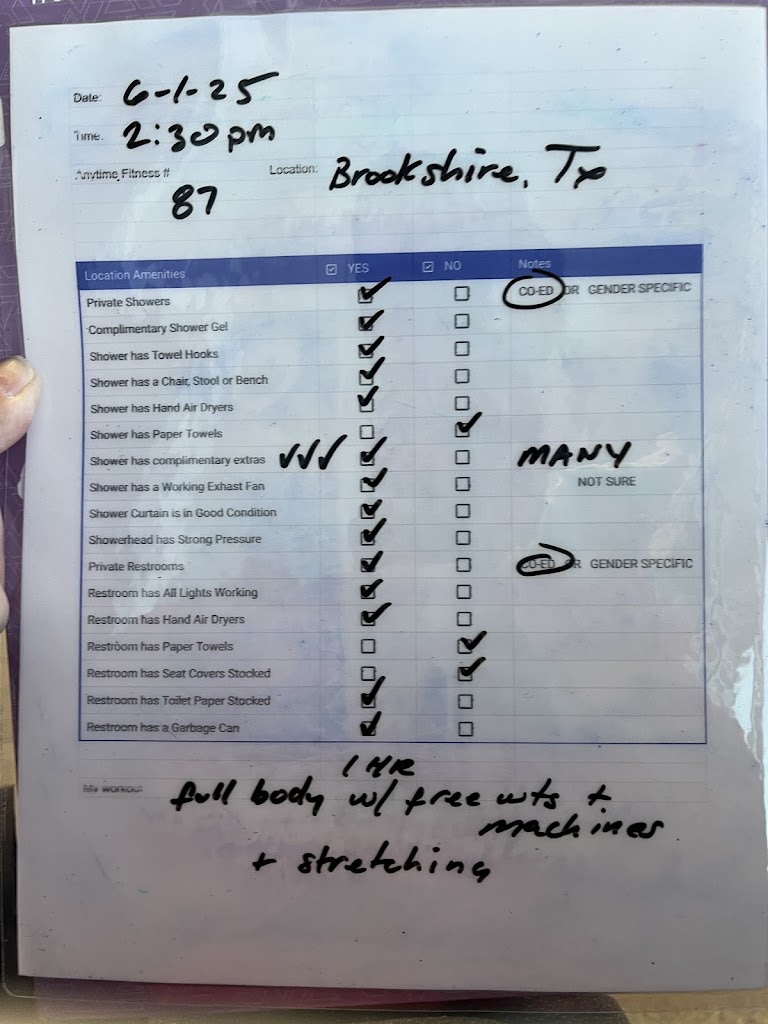 Date: 6-1-25
Time: 2:30pm
Anytime Fitness # Location: Brookshire, Tx
87
Location Amenities ☑ YES ☑ NO Notes
Private Showers ☑ ☐ CO-ED OR GENDER SPECIFIC
Complimentary Shower Gel ☑ ☐
Shower has Towel Hooks ☑ ☐
Shower has a Chair, Stool or Bench ☑ ☐
Shower has Hand Air Dryers ☑ ☐
Shower has Paper Towels ☐ ☑
Shower has complimentary extras ✓✓✓ ☑ ☐ MANY
Shower has a Working Exhast Fan ☑ ☐ NOT SURE
Shower Curtain is in Good Condition ☑ ☐
Showerhead has Strong Pressure ☑ ☐
Private Restrooms ☑ ☐ CO-ED OR GENDER SPECIFIC
Restroom has All Lights Working ☑ ☐
Restroom has Hand Air Dryers ☑ ☐
Restroom has Paper Towels ☐ ☑
Restroom has Seat Covers Stocked ☐ ☑
Restroom has Toilet Paper Stocked ☑ ☐
Restroom has a Garbage Can ☑ ☐
1 HR
My Workout full body w/ free wts +
machines
+ stretching